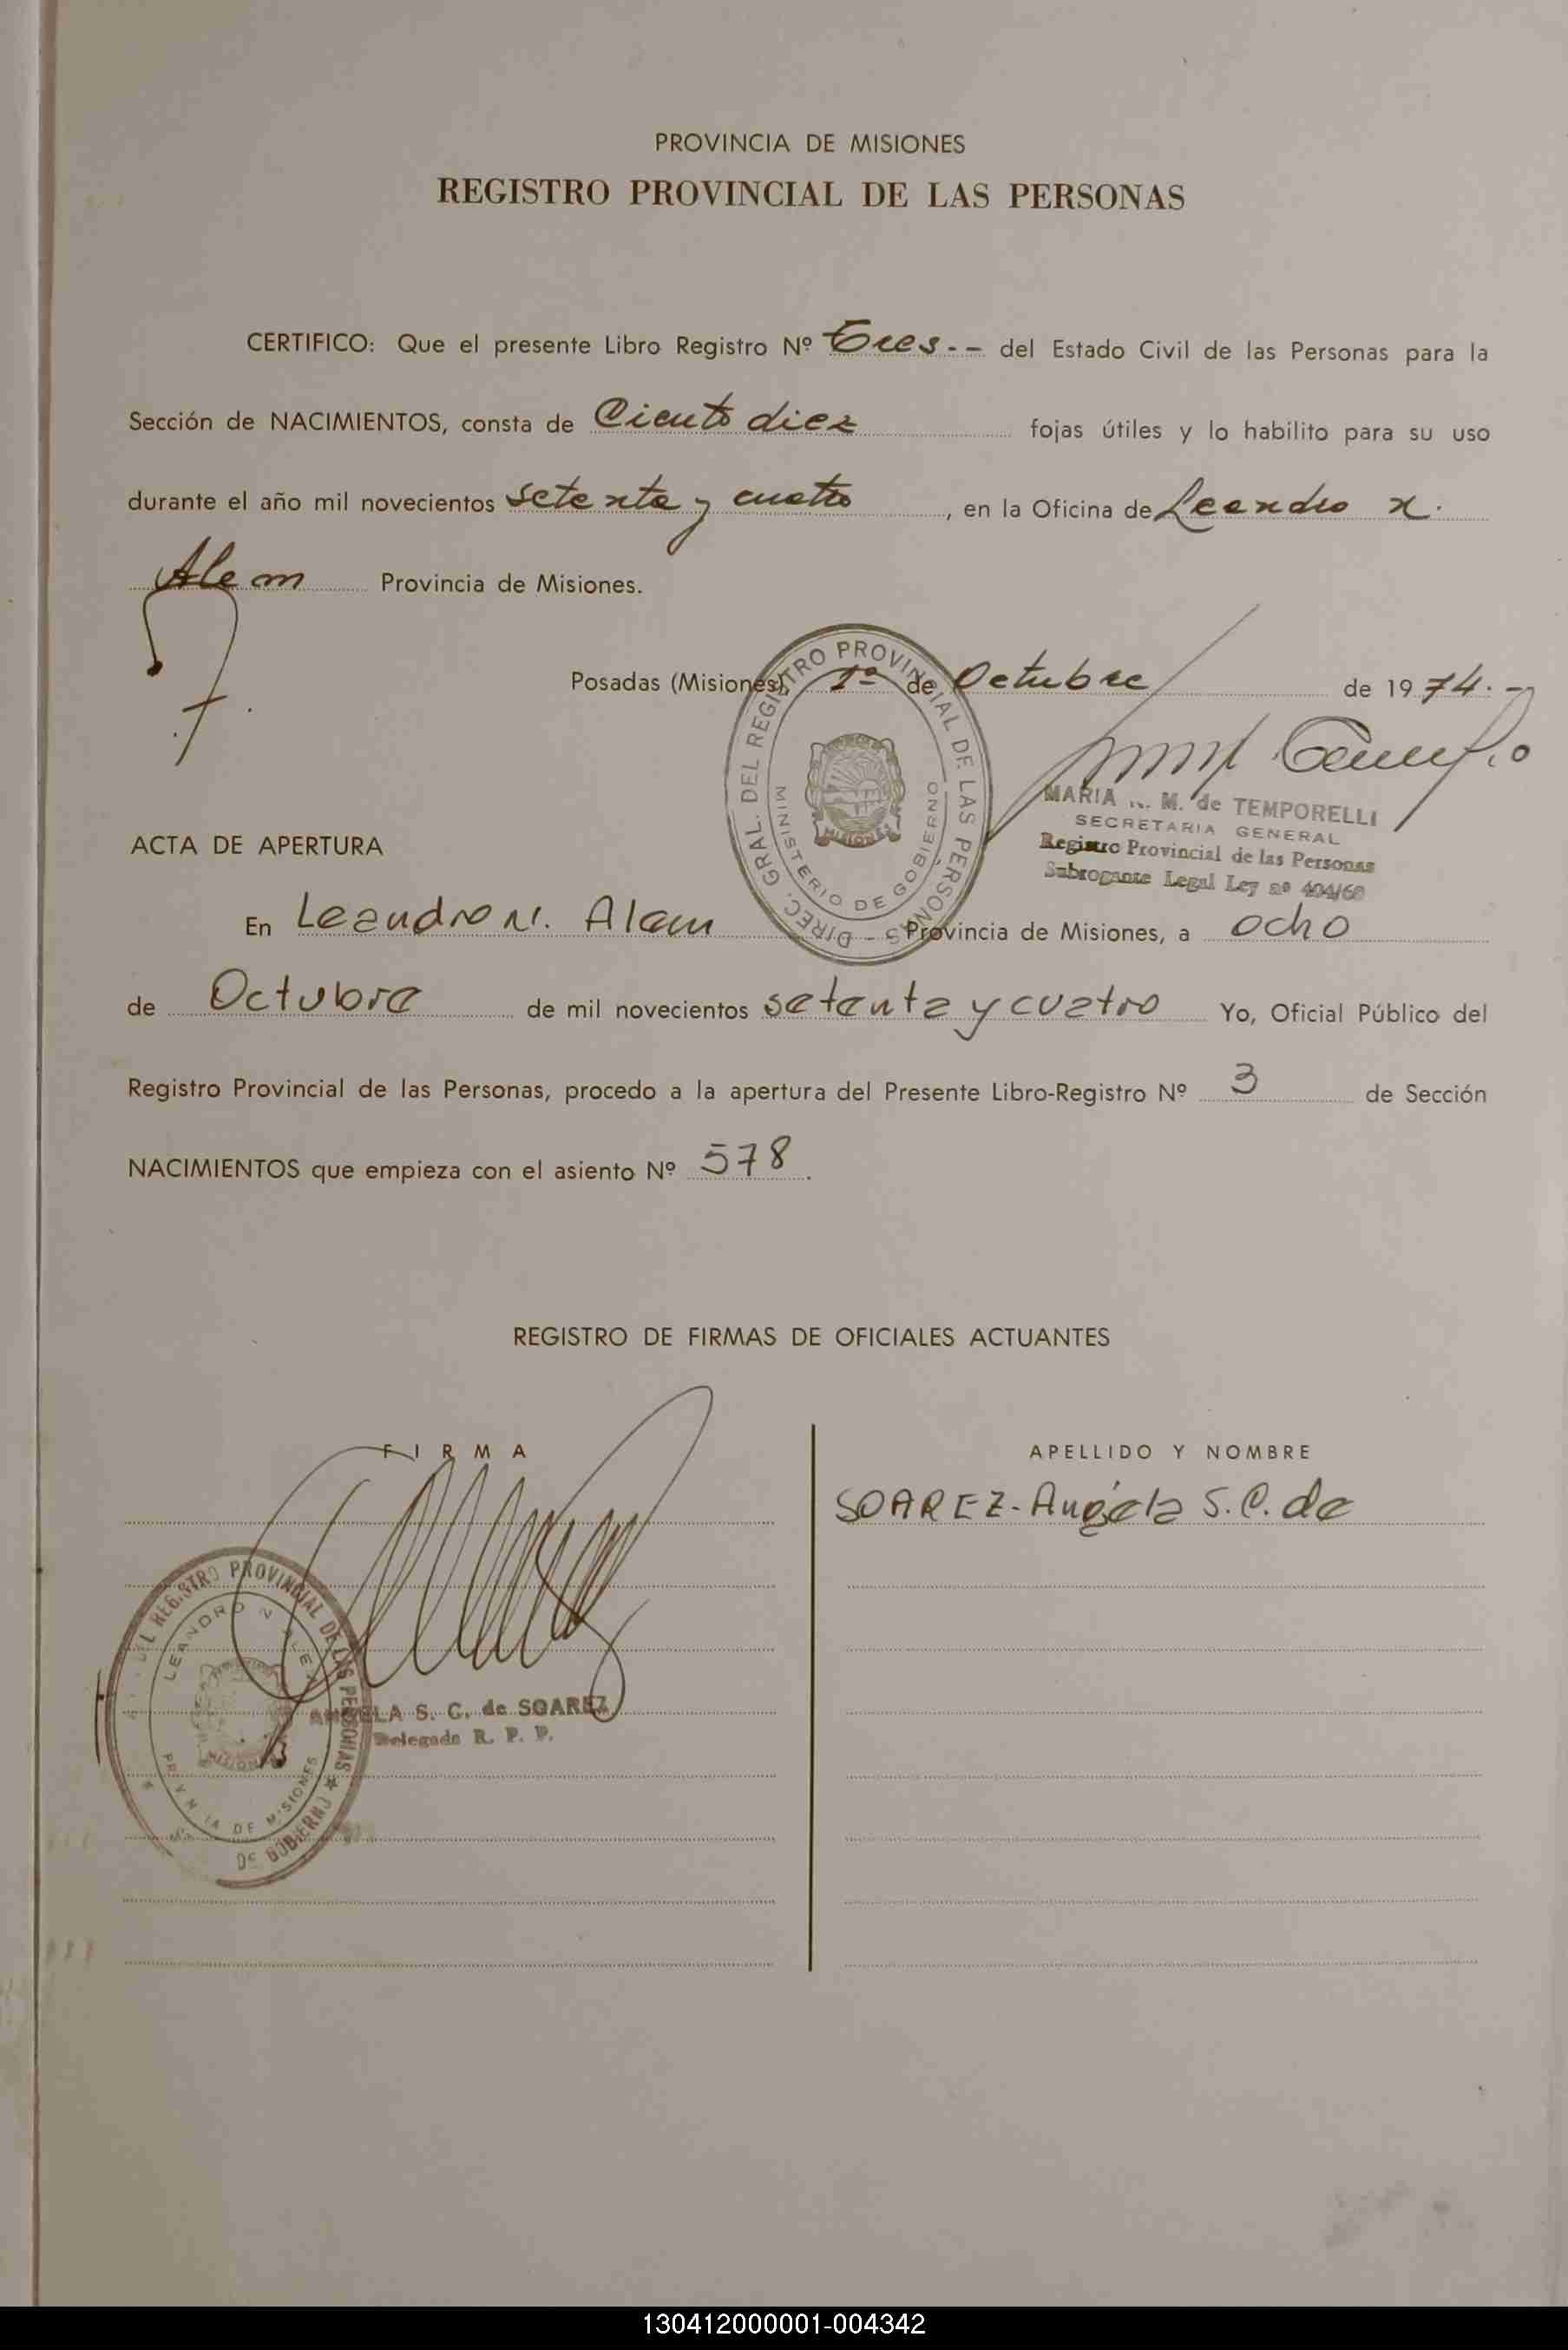 PROVINCIA DE MISIONES
REGISTRO PROVINCIAL DE LAS PERSONAS
CERTIFICO: Que el presente Libro Registro Nº Tres.-- del Estado Civil de las Personas para la
Sección de NACIMIENTOS, consta de Ciento diez fojas útiles y lo habilito para su uso
durante el año mil novecientos setenta y cuatro, en la Oficina de Leandro N.
Alem Provincia de Misiones.
Posadas (Misiones), 1º de Octubre de 1974.-
DIREC. GRAL. DEL REGISTRO PROVINCIAL DE LAS PERSONAS -
MINISTERIO DE GOBIERNO
MISIONES
MARIA M. de TEMPORELLI
SECRETARIA GENERAL
Registro Provincial de las Personas
Subrogante Legal Ley nº 404/68
ACTA DE APERTURA
En Leandro N. Alem Provincia de Misiones, a ocho
de Octubre de mil novecientos setenta y cuatro Yo, Oficial Público del
Registro Provincial de las Personas, procedo a la apertura del Presente Libro-Registro Nº 3 de Sección
NACIMIENTOS que empieza con el asiento Nº 578.
REGISTRO DE FIRMAS DE OFICIALES ACTUANTES
FIRMA
APELLIDO Y NOMBRE
SOAREZ-Angela S.C. de
DEL REGISTRO PROVINCIAL DE LAS PERSONAS
DE GOBIERNO
LEANDRO N ALEM
PROVINCIA DE MISIONES
ANGELA S. C. de SOAREZ
Delegada R. P. P.
130412000001-004342